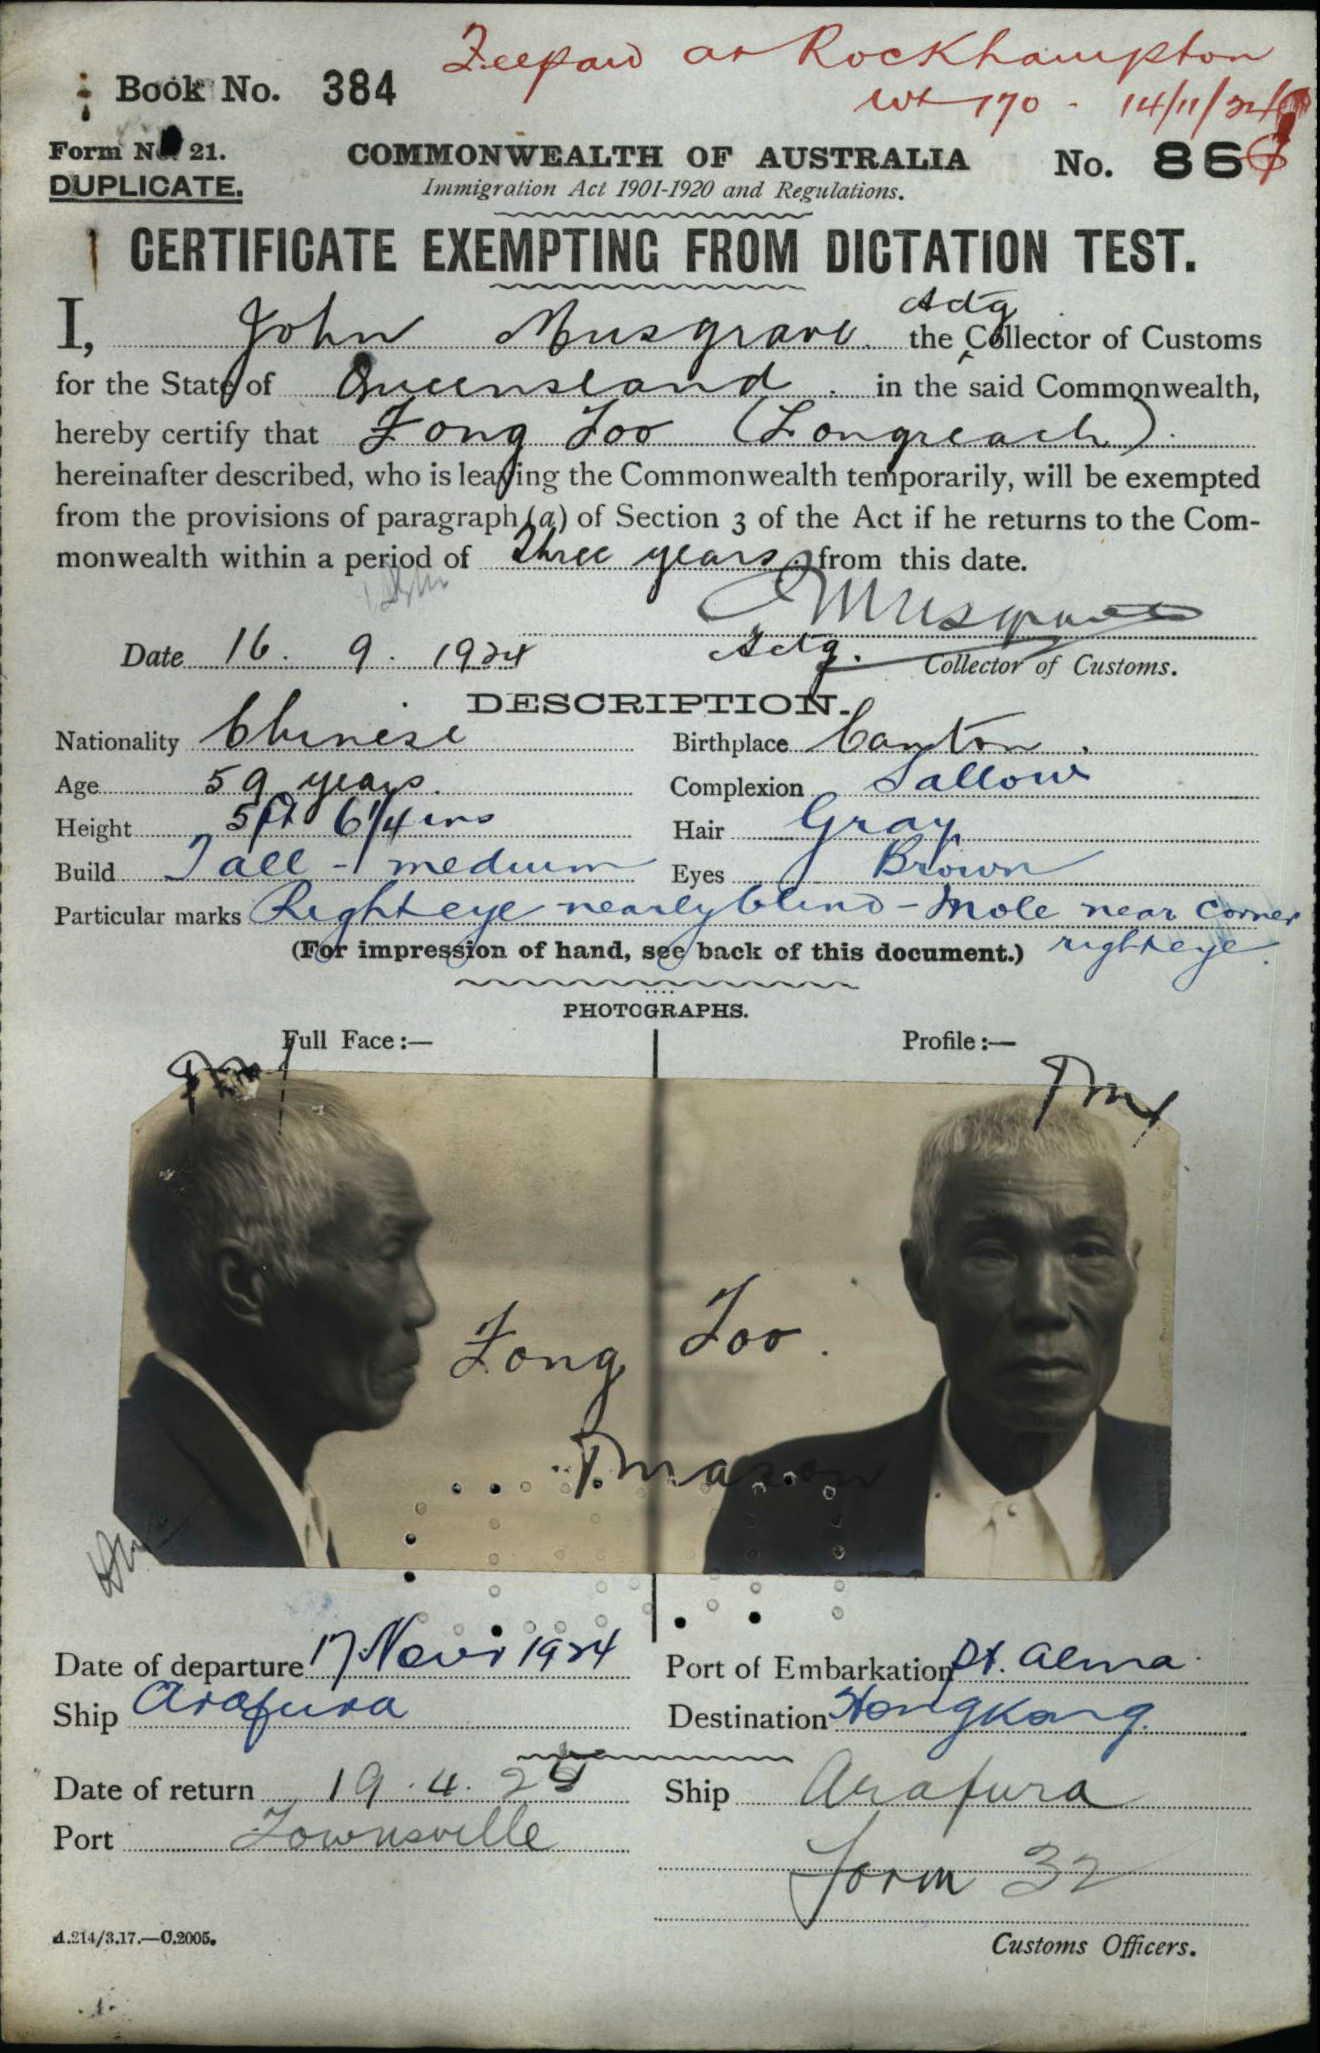 Fee paid at Rockhampton
Book No. 384
170 - 14/11/24
Form No. 21.
DUPLICATE.
COMMONWEALTH OF AUSTRALIA
No. 86
Immigration Act 1901-1920 and Regulations.
CERTIFICATE EXEMPTING FROM DICTATION TEST.
Actg
I, John Musgrave. the Collector of Customs
for the State of Queensland. in the said Commonwealth,
hereby certify that Fong Foo (Longreach).
hereinafter described, who is leaving the Commonwealth temporarily, will be exempted
from the provisions of paragraph (a) of Section 3 of the Act if he returns to the Com-
monwealth within a period of three years. from this date.
J Musgrave
Date 16. 9. 1924 Actg. Collector of Customs.
DESCRIPTION.
Nationality Chinese Birthplace Canton.
Age 59 years. Complexion Sallow
Height 5ft 6 1/4 ins Hair Gray
Build Tall - medium Eyes Brown
Particular marks Right eye nearly blind - Mole near corner
(For impression of hand, see back of this document.) right eye.
PHOTOGRAPHS.
Full Face:— Profile:—
Fong Foo.
TMason
Date of departure 17 Novr 1924 Port of Embarkation Pt. Alma.
Ship Arafura Destination Hongkong.
Date of return 19. 4. Ship Arafura
Port Townsville
Form 32
A.214/3.17.—C.2005.
Customs Officers.